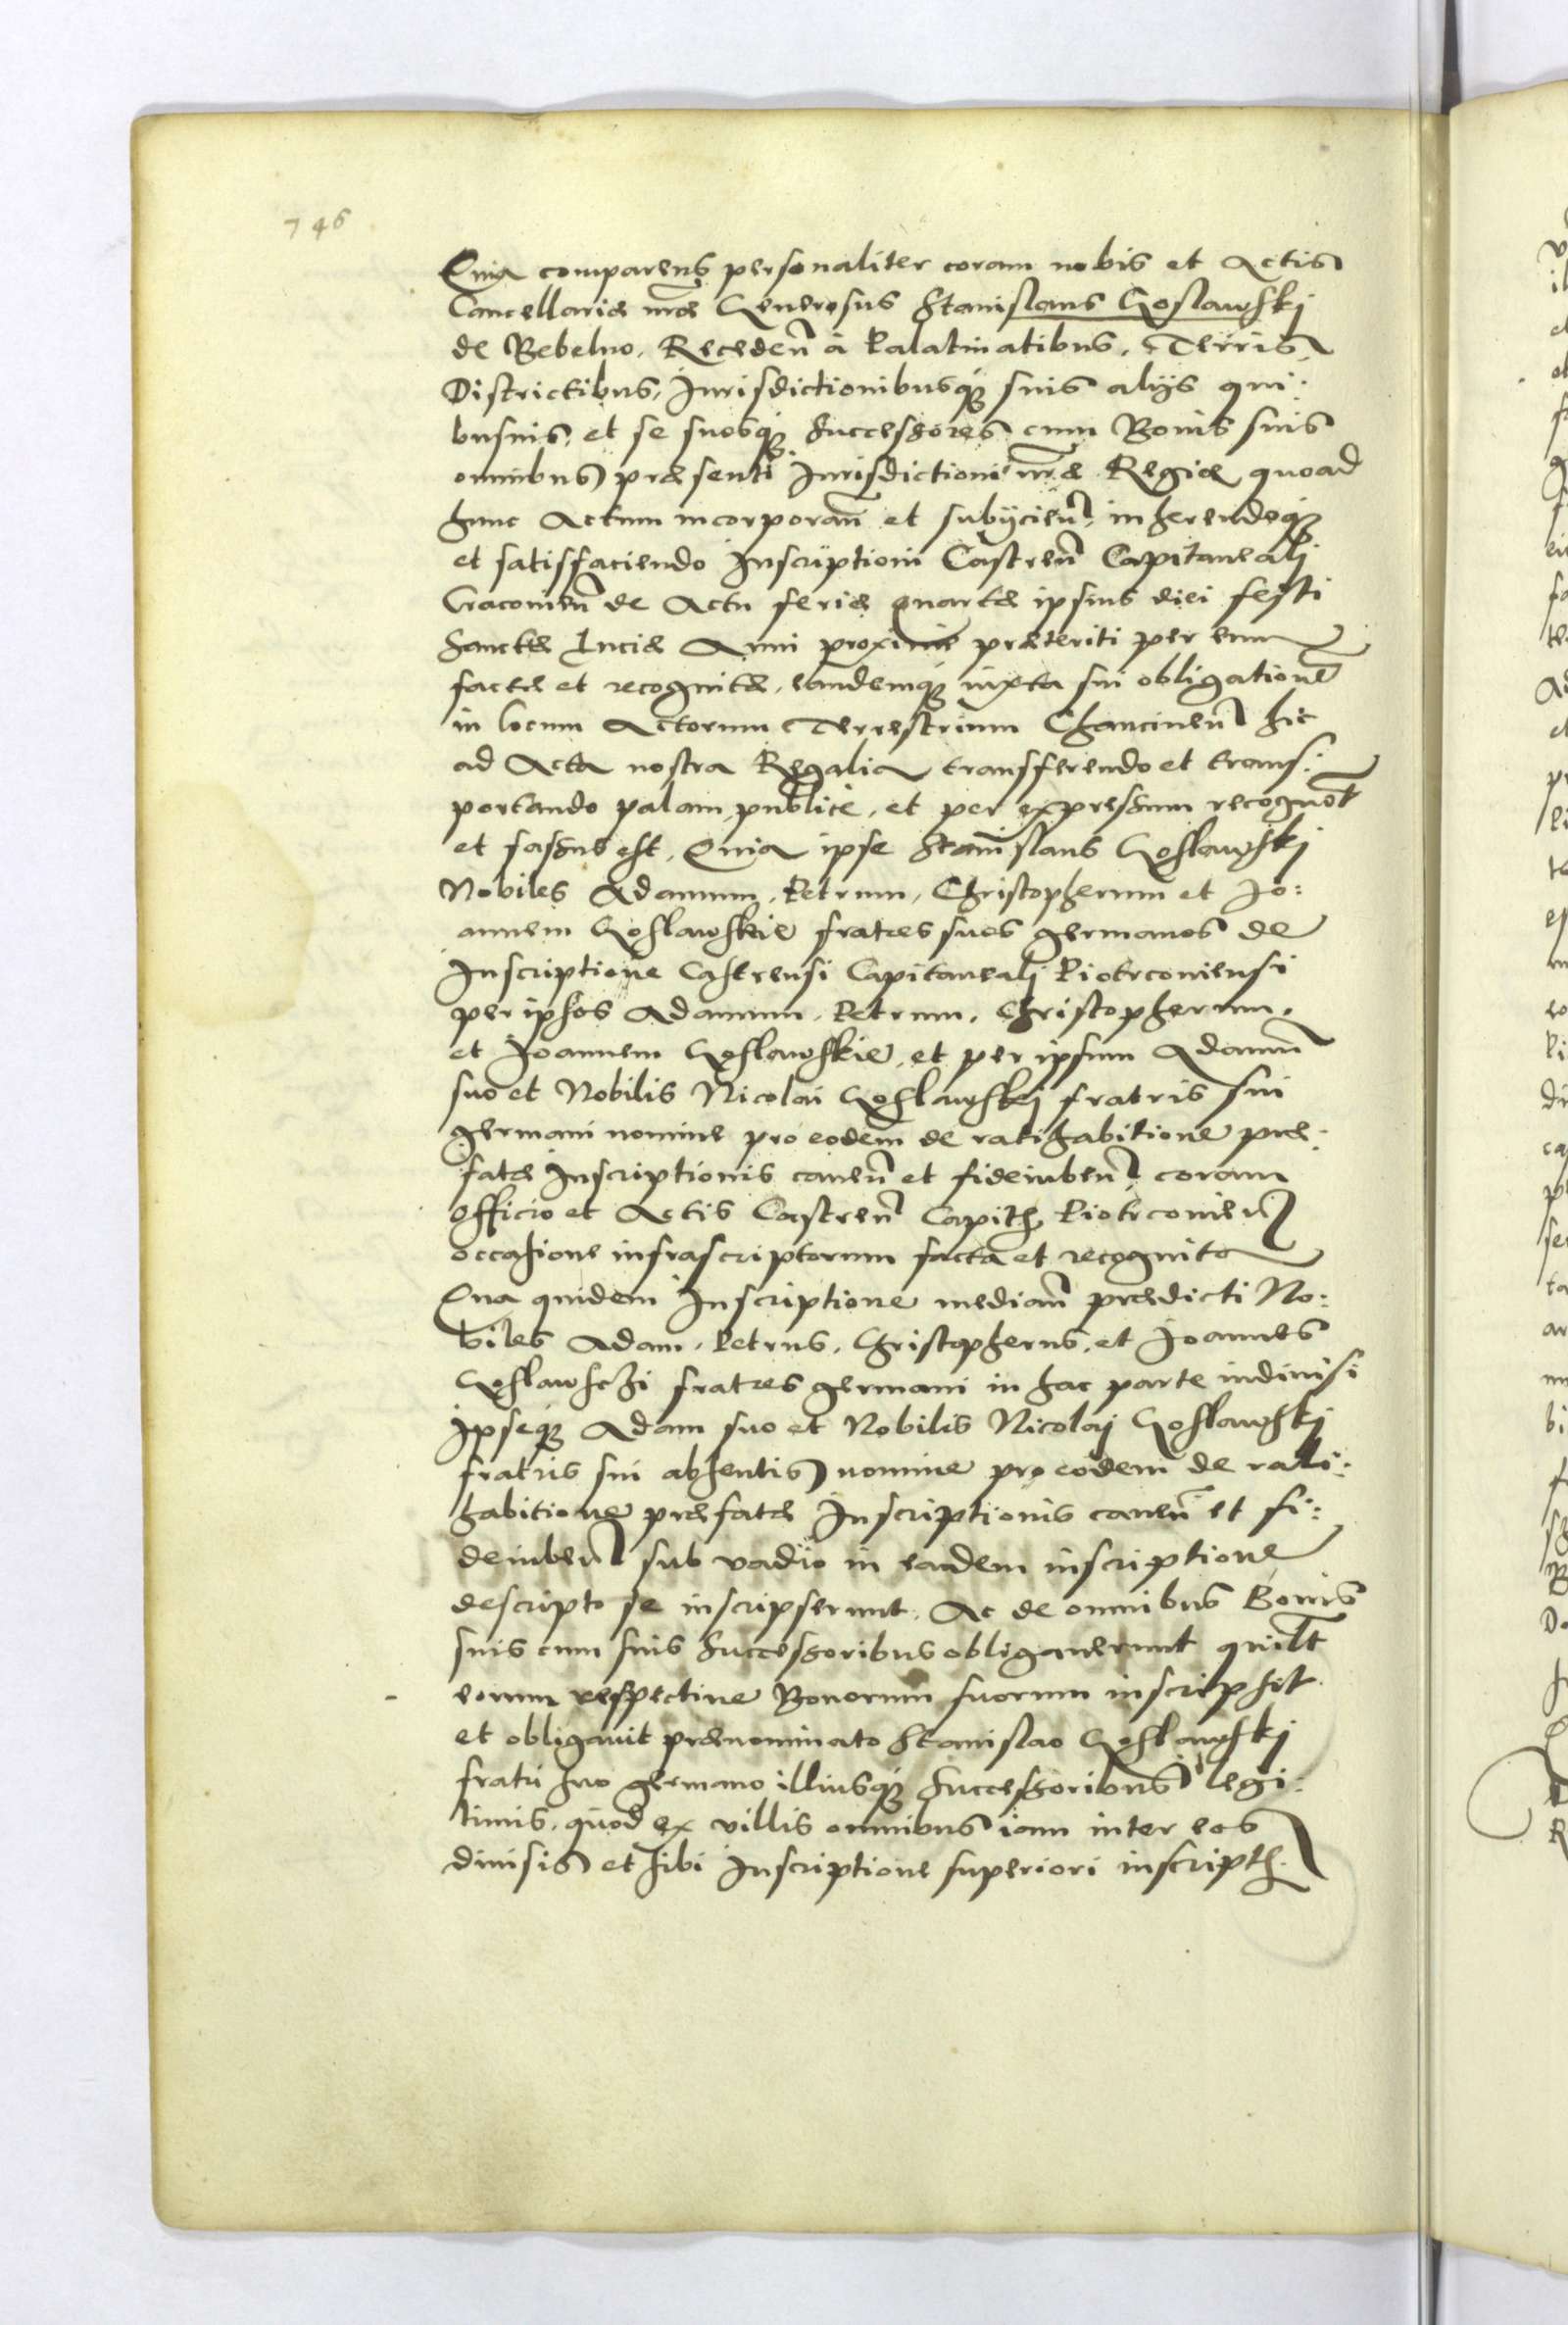 746
Quia comparens personaliter coram nobis et Actis
Cancellariæ nr̃æ Generosus Stanislaus Goslawski
de Bebelno, Receden̄ à Palatinatibus, Terris,
Districtibus, Jurisdictionibusq́ suis alijs qui:
busuis, et se suosq́ Successores cum Bonis suis
omnibus præsenti Jurisdictioni nr̃æ Regiæ quoad
hunc Actum incorporan̄ et subijcien̄, inherendoq́
et satisfaciendo Inscriptioni Castren̄ Capitaneali
Cracouien̄ de Actu feriæ quartæ ipsius diei festi
Sanctæ Luciæ Anni proxime præteriti per eum
factæ et recognitæ, eandemq́ iuxta sui obligationē
in locum Actorum Terrestrium Chancinen̄ hic
ad Acta nostra Regalia transferendo et trans:
portando palam, publice, et per expressum recognoūt
et fassus est, Quia ipse Stanislaus Goslawski
Nobiles Adamum, Petrum, Christopherum et Jo:
annem Goslawskie fratres suos germanos de
Inscriptione Castrensi Capitaneali Piotrcouiensi
per ipsos Adamum, Petrum, Christopherum,
et Joannem Goslawskie, et per ipsum Adamū
suo et Nobilis Nicolai Goslawskj fratris sui
germani nomine pro eodem de ratihabitione præ:
fatæ Inscriptionis cauen̄ et fideiuben̄, coram
Officio et Actis Castren̄ Capith. Piotrcouien̄
occasione infrascriptorum facta et recognita
Qua quidem Inscriptione median̄ prædicti No:
biles Adam, Petrus, Christopherus, et Joannes
Goslawsczi fratres germani in hac parte indiuisi
Ipseq́ Adam suo et Nobilis Nicolaj Goslawskj
fratris sui absentis nomine pro eodem de rati:
habitione præfatæ Inscriptionis cauen̄ et fi:
deiuben̄ sub vadio in eadem inscriptione
descripto se inscripserunt. Ac de omnibus Bonis
suis cum suis Successoribus obligauerunt quil̄t
eorum respectiue Bonorum suorum inscripsit
et obligauit prænominato Stanislao Goslawskj
fratri suo germano illiusq́ Successoribus legi:
timis, quod ex villis omnibus iam inter eos
diuisis et sibi Inscriptione superiori inscripth.